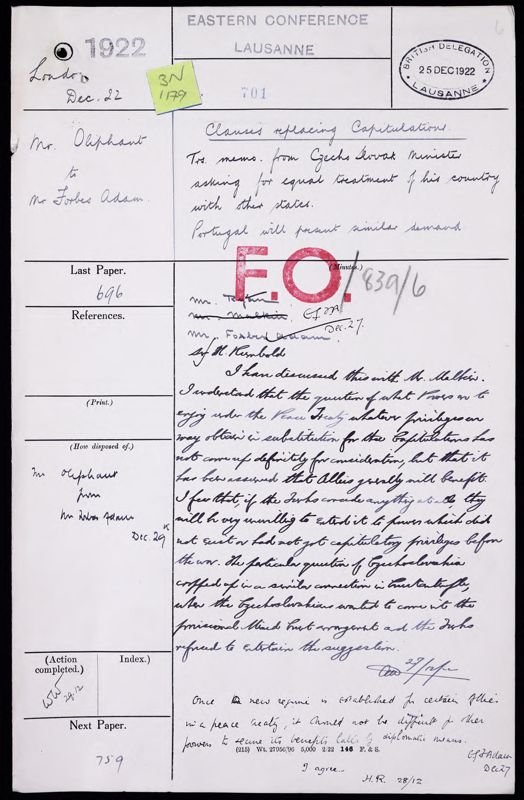 EASTERN CONFERENCE
LAUSANNE
1922
London
Dec. 22
3N
1179
701
BRITISH DELEGATION
25 DEC 1922
LAUSANNE
6
Mr. Oliphant
to
Mr Forbes Adam.
Clauses replacing Capitulations.
Trs. memo. from Czecho Slovak Minister
asking for equal treatment of his country
with other states.
Portugal will present similar demand
Last Paper.
696
References.
(Print.)
(How disposed of.)
Mr Oliphant
from
Mr Forbes Adam
Dec. 29th
(Action completed.)
29.12
(Index.)
Next Paper.
759
(Minutes.)
F.O.
839/6
Mr.
Mr. Malkin
Dec. 27.
Mr. Forbes Adam
Sir H. Rumbold
I have discussed this with Mr. Malkin.
I understand that the question of what Powers are to
enjoy under the Peace Treaty whatever privileges we
may obtain in substitution for the Capitulations has
not come up definitely for consideration, but that it
has been assumed that Allies generally will benefit.
I fear that, if the Turks concede anything at all they
will be very unwilling to extend it to powers which did
not exist or had not got capitulatory privileges before
the war. The particular question of Czechoslovakia
cropped up in a similar connection in Constantinople,
when the Czechoslovakians wanted to come into the
provisional Mixed Court arrangement and the Turks
refused to entertain the suggestion.
27/12/22
Once new regime is established for certain Allies
in a peace treaty, it should not be difficult for other
powers to secure its benefits by diplomatic means.
(215) Wt. 27056/96 5,000 2-22 146 F. & S.
EGFAdam
Dec 27
I agree.
H.R. 28/12